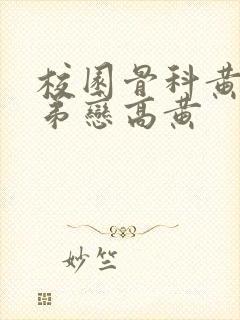 校園骨科黃
弟戀高黃
妙竺